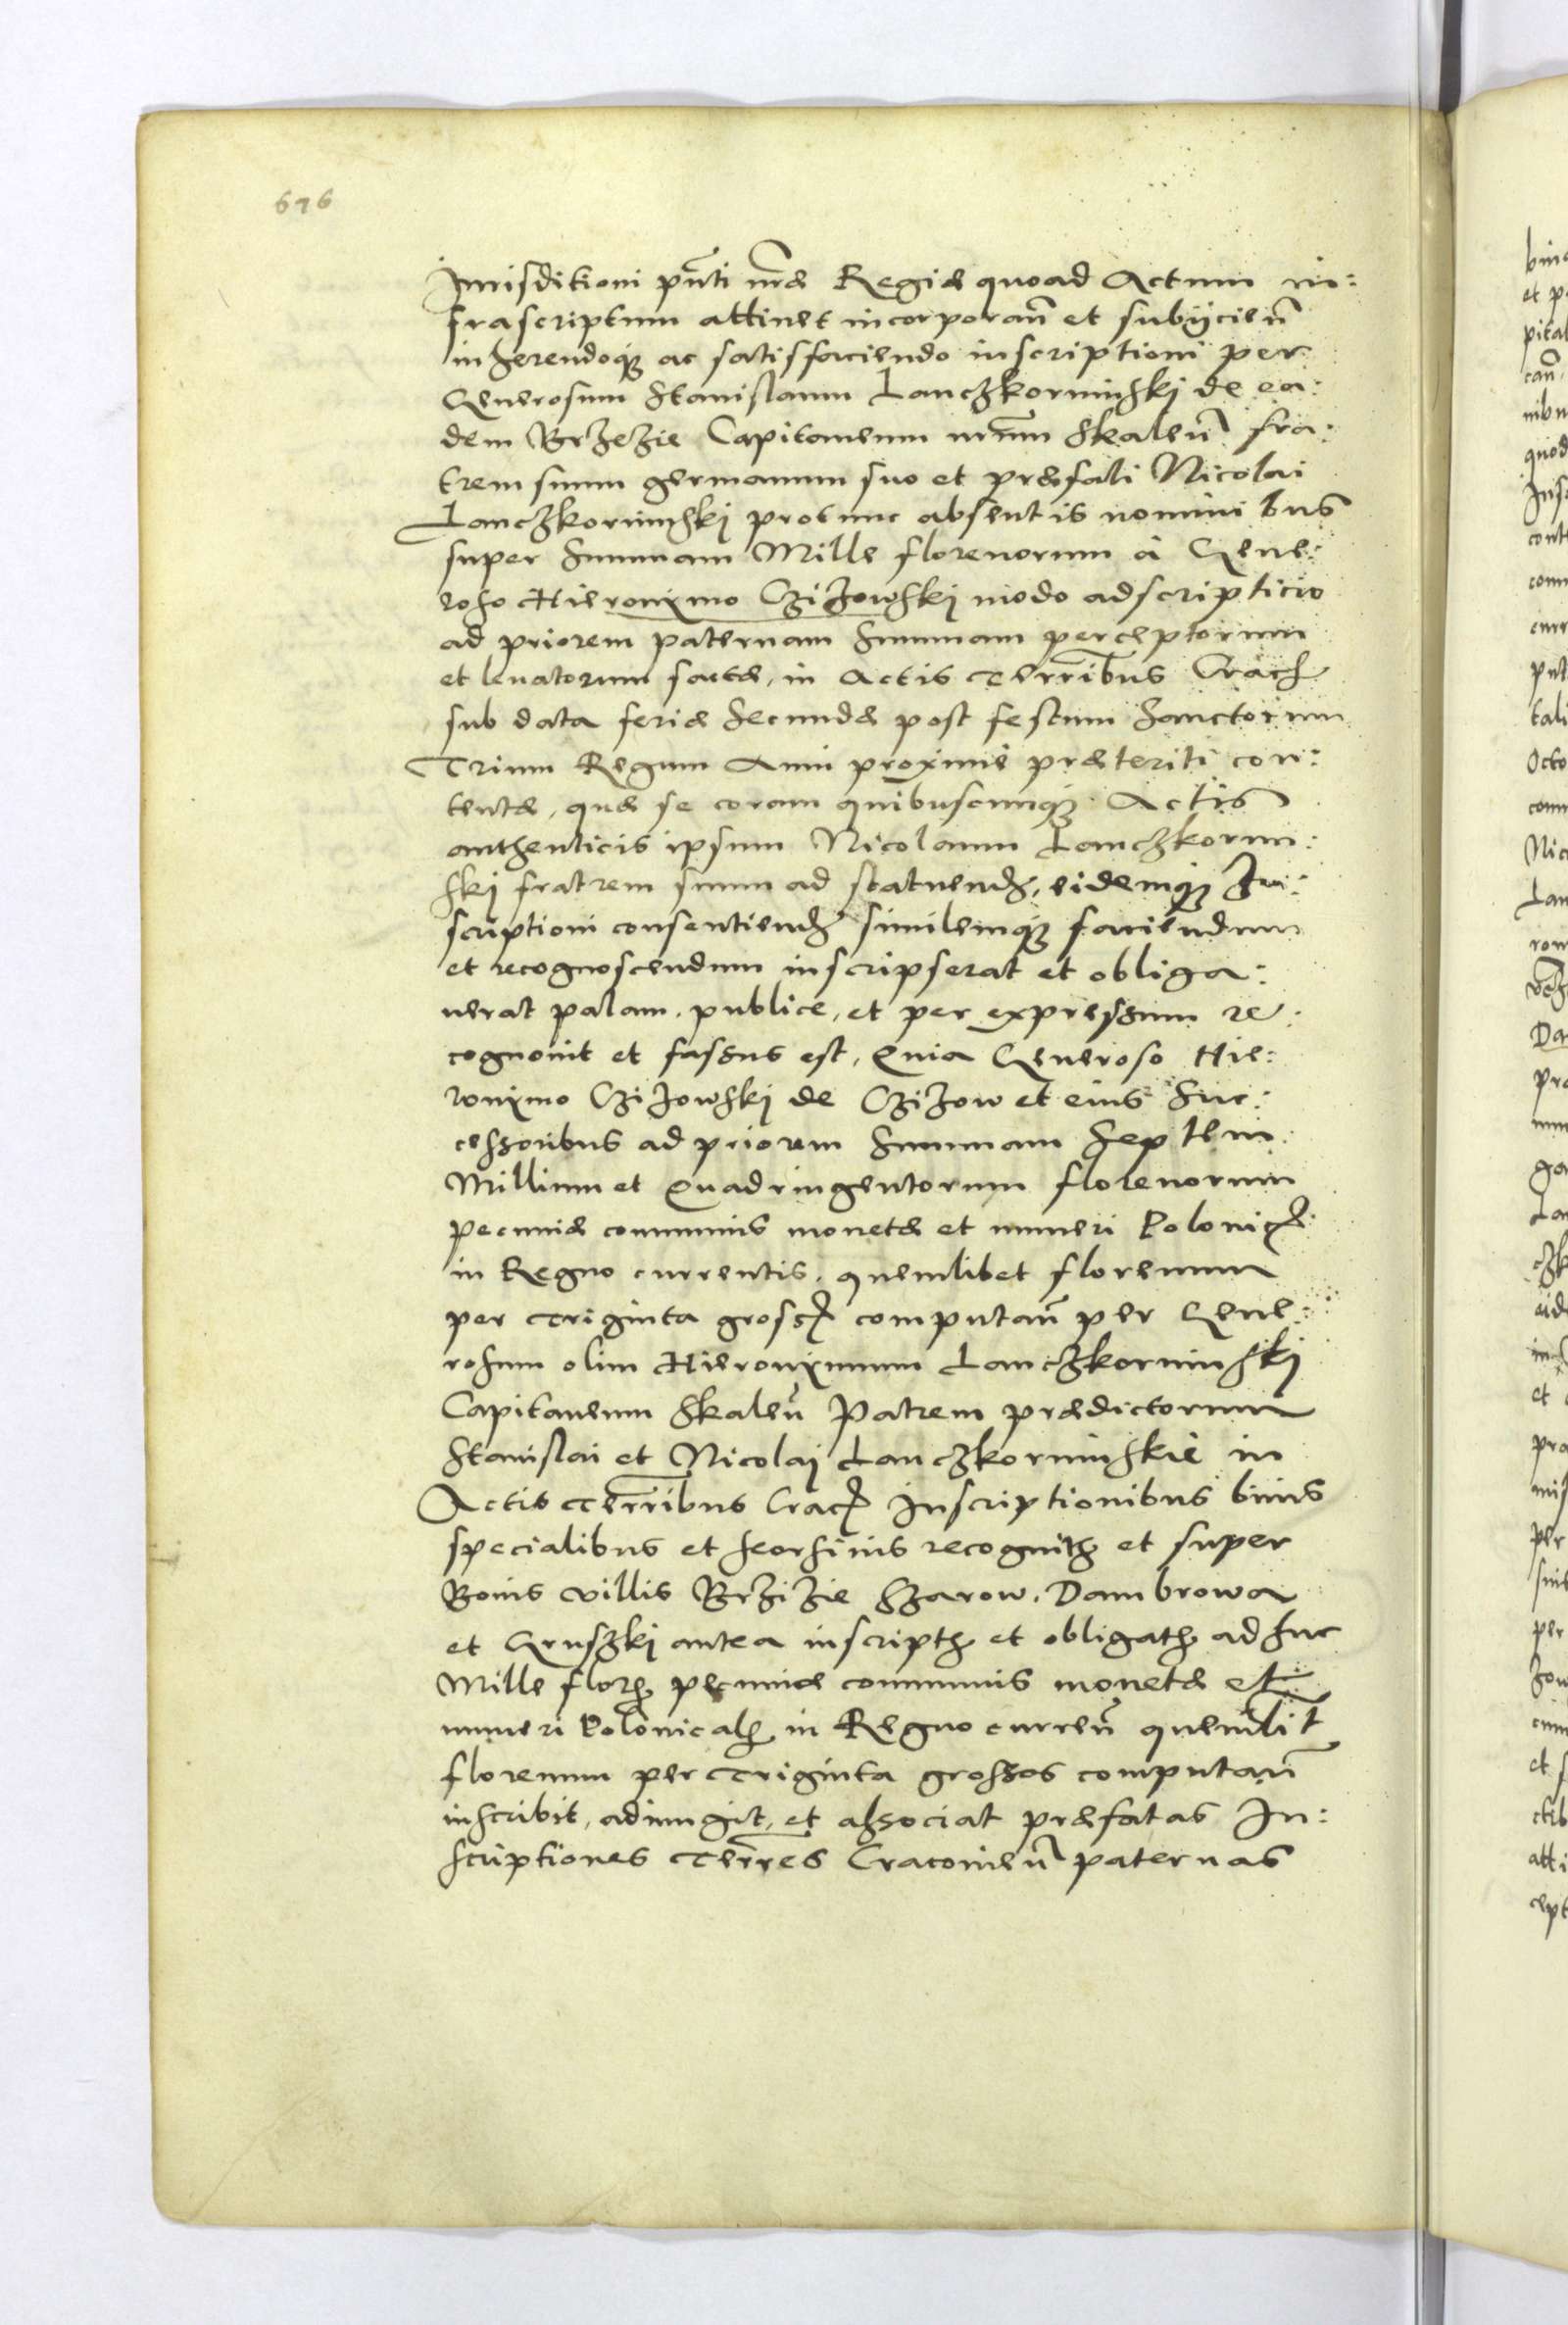 676
Jurisditioni pñti nrae Regiae quoad Actum in:
frascriptum attinet incorporañ et subijcieñ
inhaerendoq; ac satisfaciendo inscriptioni per
Generosum Stanislaum Lanczkorunski de ea:
dem Brzezie Capitaneum nrum Skaleñ fra:
trem suum germanum suo et praefati Nicolai
Lanczkorunski protunc absentis nominibus
super summam Mille florenorum a Gene:
roso Hieronimo Czizowski modo adscripticio
ad priorem paternam summam perceptorum
et leuatorum factae, in Actis Terribus Cracz
sub data feriae secundae post festum Sanctorum
Trium Regum Anni proxime praeteriti con:
tentae, quae se coram quibuscunq; Actis
authenticis ipsum Nicolaum Lanczkorun:
ski fratrem suum ad statuendz, eidemq; In:
scriptioni consentiendz similemq; faciendum
et recognoscendum inscripserat et obliga:
uerat palam, publice, et per expressum re:
cognouit et fassus est, Quia Generoso Hie:
ronimo Czizowski de Czizow et eius suc:
cessoribus ad priorem summam septem
Millium et Quadringentorum florenorum
pecuniae communis monetae et numeri Polonicz
in Regno currentis, quemlibet florenum
per Triginta grossz computañ per Gene:
rosum olim Hieronimum Lanczkorunski
Capitaneum Skaleñ Patrem praedictorum
Stanislai et Nicolaj Lanczkorunskie in
Actis Terribus Cracz Inscriptionibus binis
specialibus et seorsiuis recognitz et super
Bonis villis Brzizie Szarow, Dambrowa
et Gruszki antea inscriptz et obligatz adhuc
Mille florz pecuniae communis monetae et
numeri Polonicalz in Regno curreñ quemlit
florenum per Triginta grossos computañ
inscribit, adiungit, et associat praefatas In:
scriptiones Terres Cracouieñ paternas